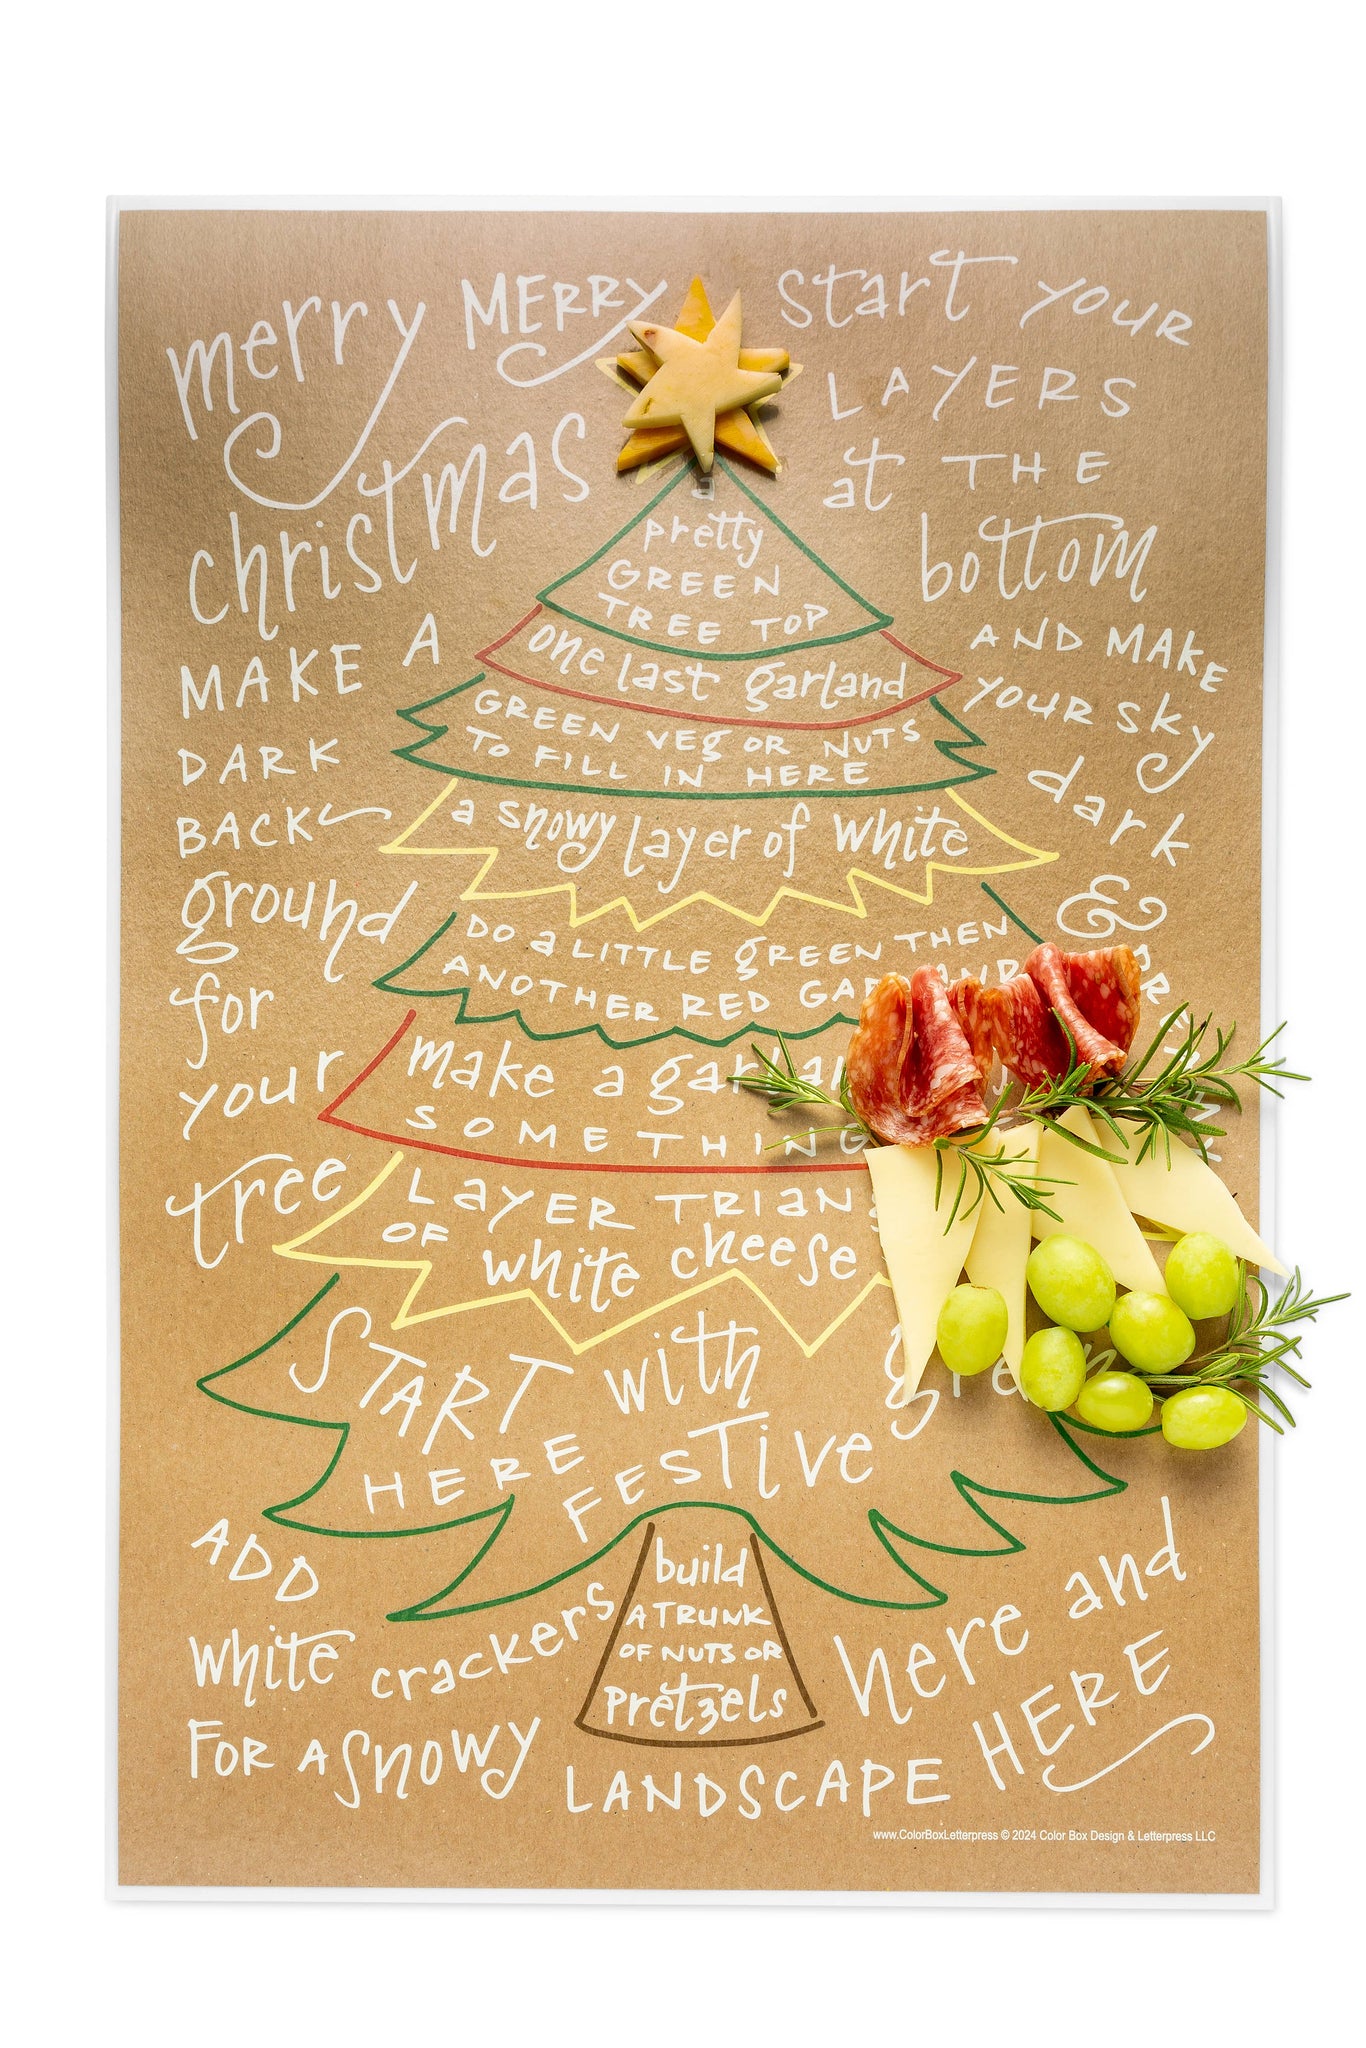 merry MERRY
christmas
MAKE A
DARK
BACK
ground
for
your
tree
start YOUR
LAYERS
at THE
bottom
AND MAKE
YOUR SKY
dark
&
a
pretty
GREEN
TREE TOP
one last garland
GREEN VEG OR NUTS
TO FILL IN HERE
a snowy layer of white
DO a LITTLE GREEN THEN
ANOTHER RED
make a
SOMETHING
LAYER
OF white cheese
START with
HERE FESTIVE
build
A TRUNK
OF NUTS OR
Pretzels
ADD
white crackers
FOR A SNOWY
LANDSCAPE
here and
HERE
www.ColorBoxLetterpress © 2024 Color Box Design & Letterpress LLC